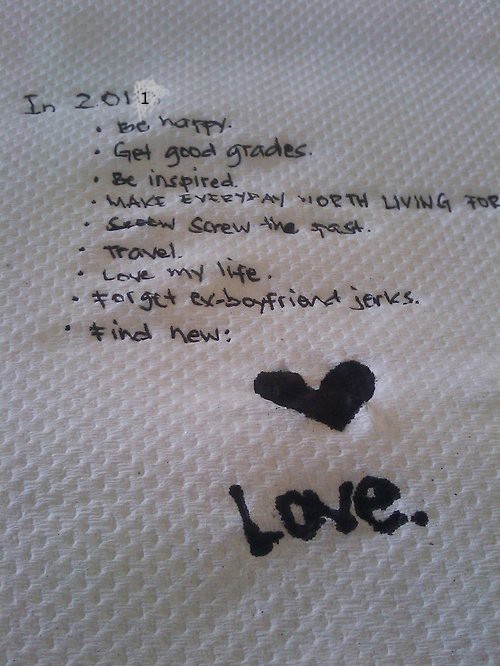 In 2011
• Be happy.
• Get good grades.
• Be inspired.
• MAKE EVERYDAY WORTH LIVING FOR
• Screw the past.
• Travel.
• Love my life.
• Forget ex-boyfriend jerks.
• Find new:
Love.